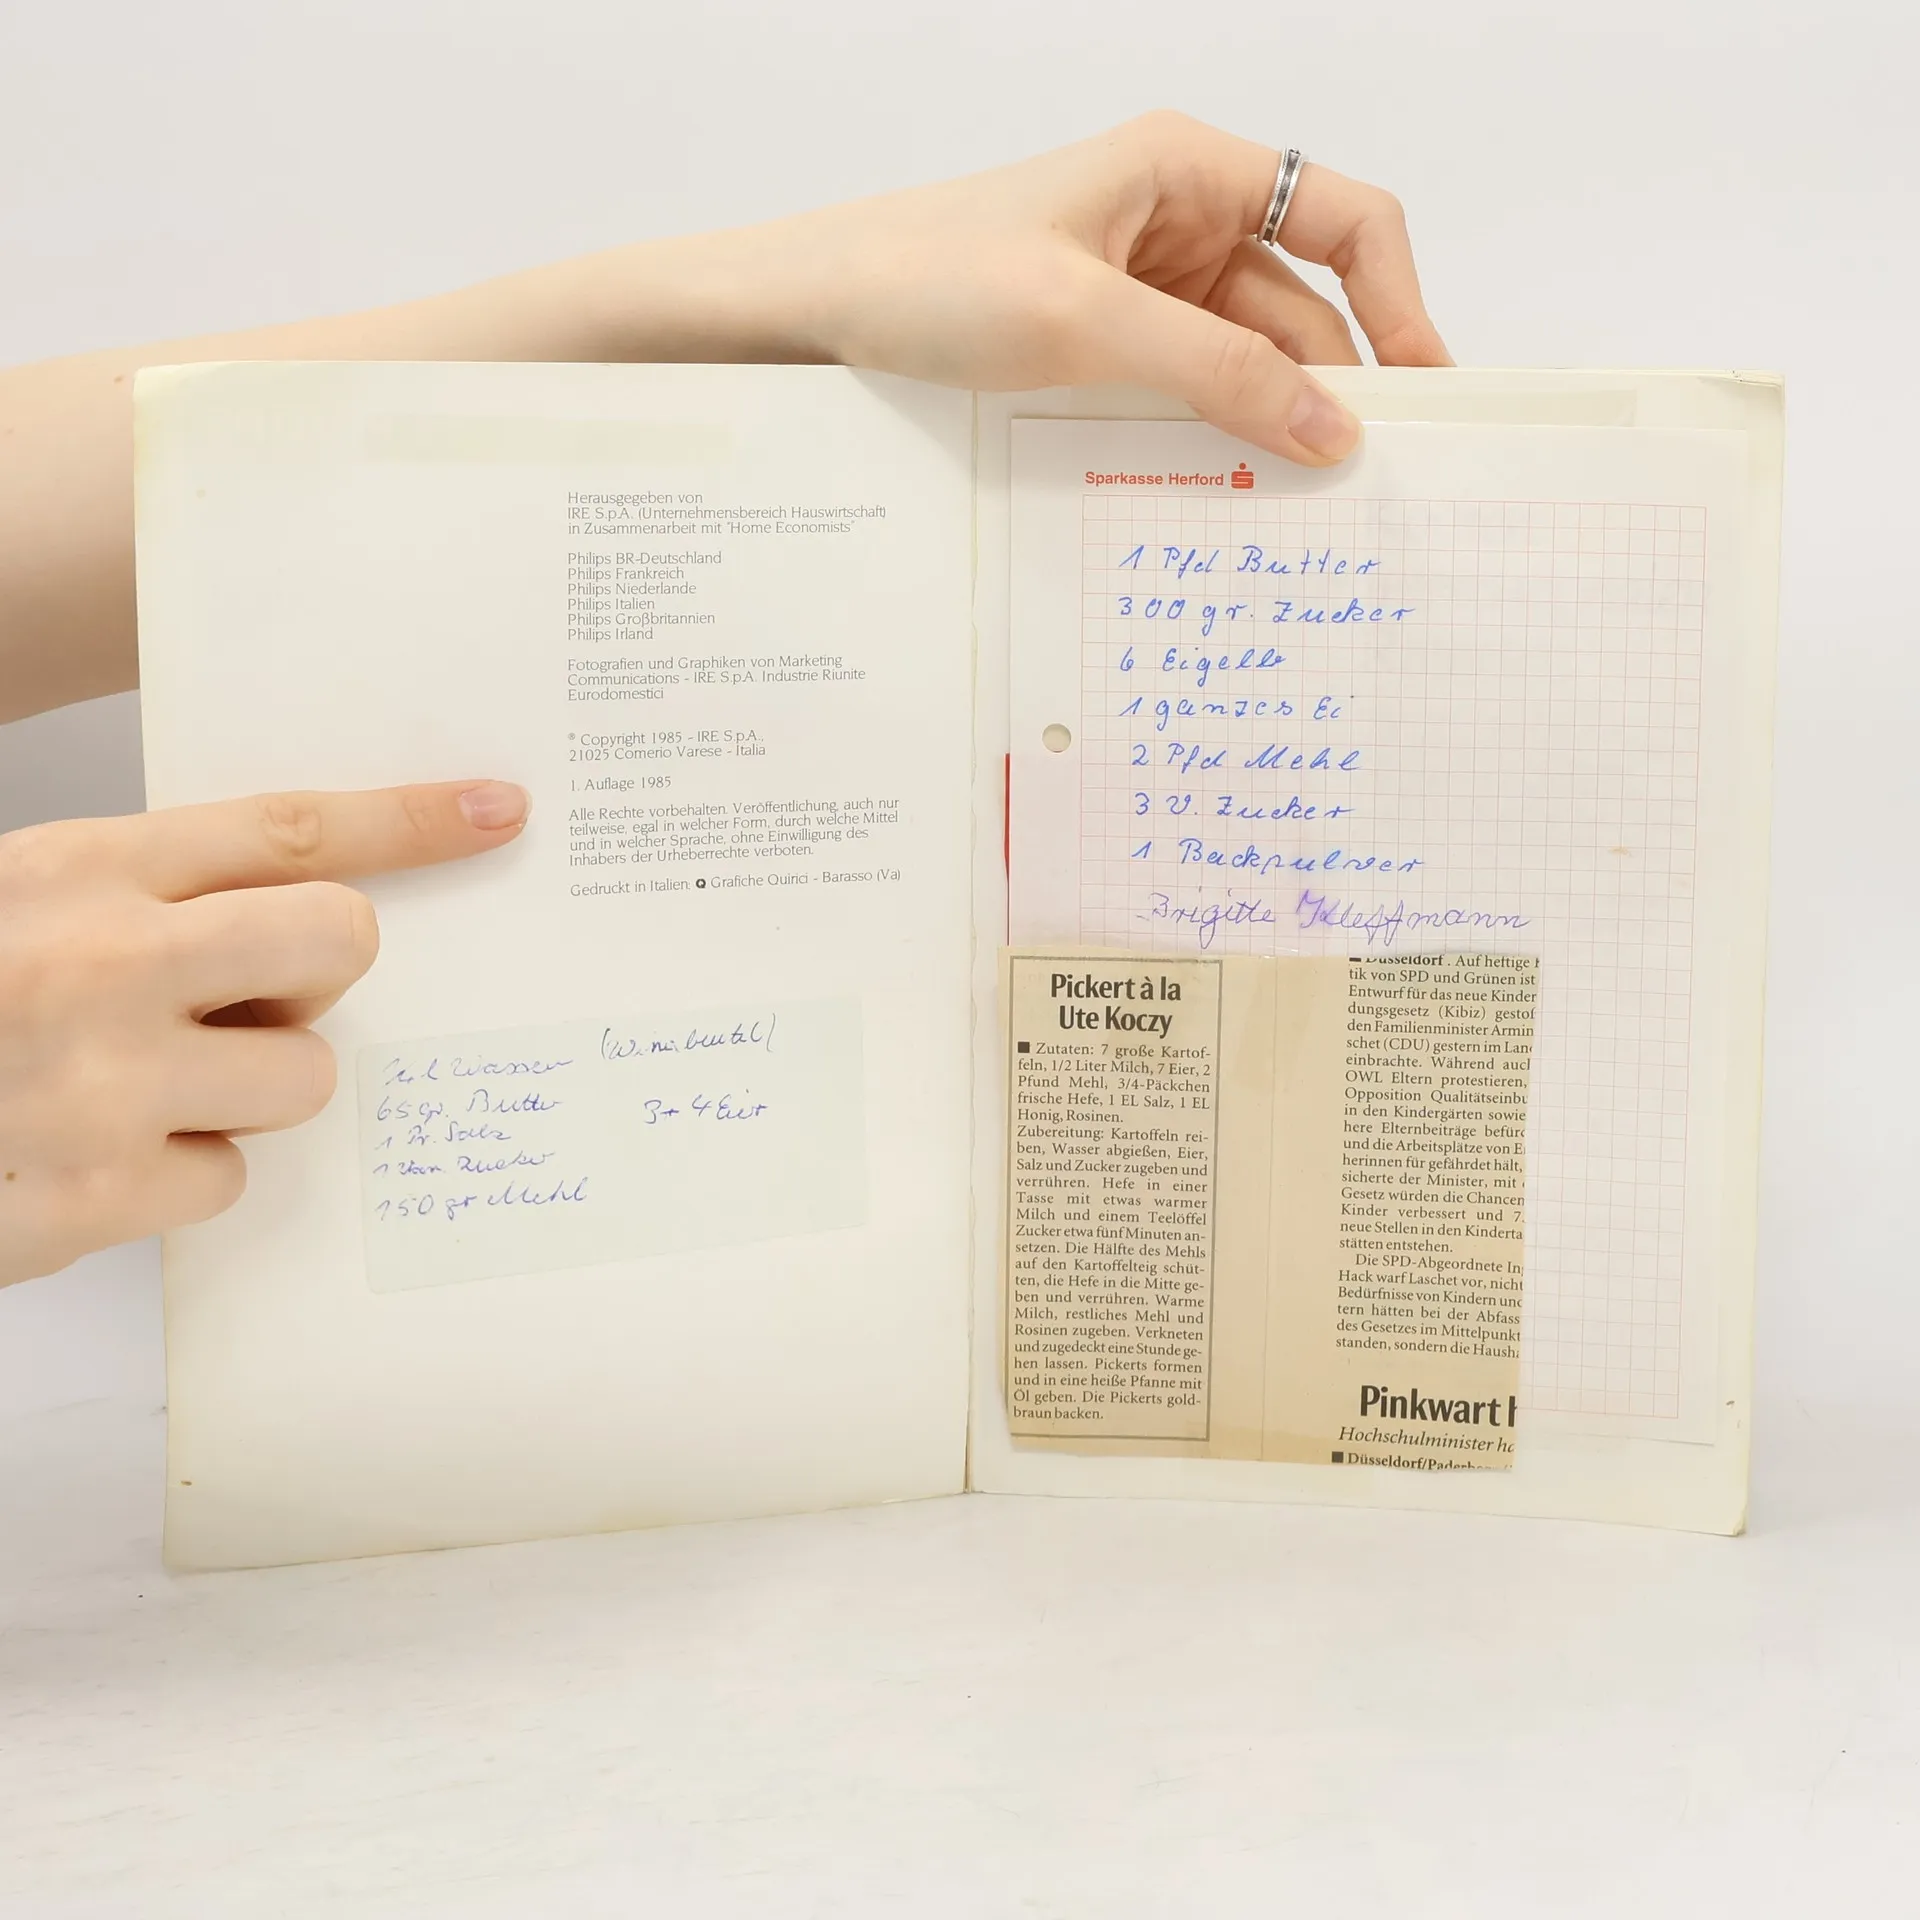 Herausgegeben von
IRE S.p.A. (Unternehmensbereich Hauswirtschaft)
in Zusammenarbeit mit "Home Economists"
Philips BR-Deutschland
Philips Frankreich
Philips Niederlande
Philips Italien
Philips Großbritannien
Philips Irland
Fotografien und Graphiken von Marketing
Communications - IRE S.p.A. Industrie Riunite
Eurodomestici
® Copyright 1985 - IRE S.p.A.,
21025 Comerio Varese - Italia
1. Auflage 1985
Alle Rechte vorbehalten. Veröffentlichung, auch nur
teilweise, egal in welcher Form, durch welche Mittel
und in welcher Sprache, ohne Einwilligung des
Inhabers der Urheberrechte verboten.
Gedruckt in Italien: Grafiche Quirici - Barasso (Va)
Wasser
65 gr. Butter 3-4 Eier
1 Pr. Salz
1 Zucker
150 gr Mehl
Sparkasse Herford
1 Pfd Butter
300 gr. Zucker
6 Eigelb
1 ganzes Ei
2 Pfd Mehl
3 V. Zucker
1 Backpulver
Brigitte Kleffmann
Pickert à la
Ute Koczy
■ Zutaten: 7 große Kartof-
feln, 1/2 Liter Milch, 7 Eier, 2
Pfund Mehl, 3/4-Päckchen
frische Hefe, 1 EL Salz, 1 EL
Honig, Rosinen.
Zubereitung: Kartoffeln rei-
ben, Wasser abgießen, Eier,
Salz und Zucker zugeben und
verrühren. Hefe in einer
Tasse mit etwas warmer
Milch und einem Teelöffel
Zucker etwa fünf Minuten an-
setzen. Die Hälfte des Mehls
auf den Kartoffelteig schüt-
ten, die Hefe in die Mitte ge-
ben und verrühren. Warme
Milch, restliches Mehl und
Rosinen zugeben. Verkneten
und zugedeckt eine Stunde ge-
hen lassen. Pickerts formen
und in eine heiße Pfanne mit
Öl geben. Die Pickerts gold-
braun backen.
■ Düsseldorf. Auf heftige
tik von SPD und Grünen ist
Entwurf für das neue Kinder
dungsgesetz (Kibiz) gestof
den Familienminister Armin
schet (CDU) gestern im Lan
einbrachte. Während auch
OWL Eltern protestieren,
Opposition Qualitätseinbu
in den Kindergärten sowie
here Elternbeiträge befürc
und die Arbeitsplätze von E
herinnen für gefährdet hält,
sicherte der Minister, mit
Gesetz würden die Chancen
Kinder verbessert und 7.
neue Stellen in den Kinderta
stätten entstehen.
Die SPD-Abgeordnete In
Hack warf Laschet vor, nicht
Bedürfnisse von Kindern und
tern hätten bei der Abfass
des Gesetzes im Mittelpunkt
standen, sondern die Hausha
Pinkwart
Hochschulminister ha
■ Düsseldorf/Paderb